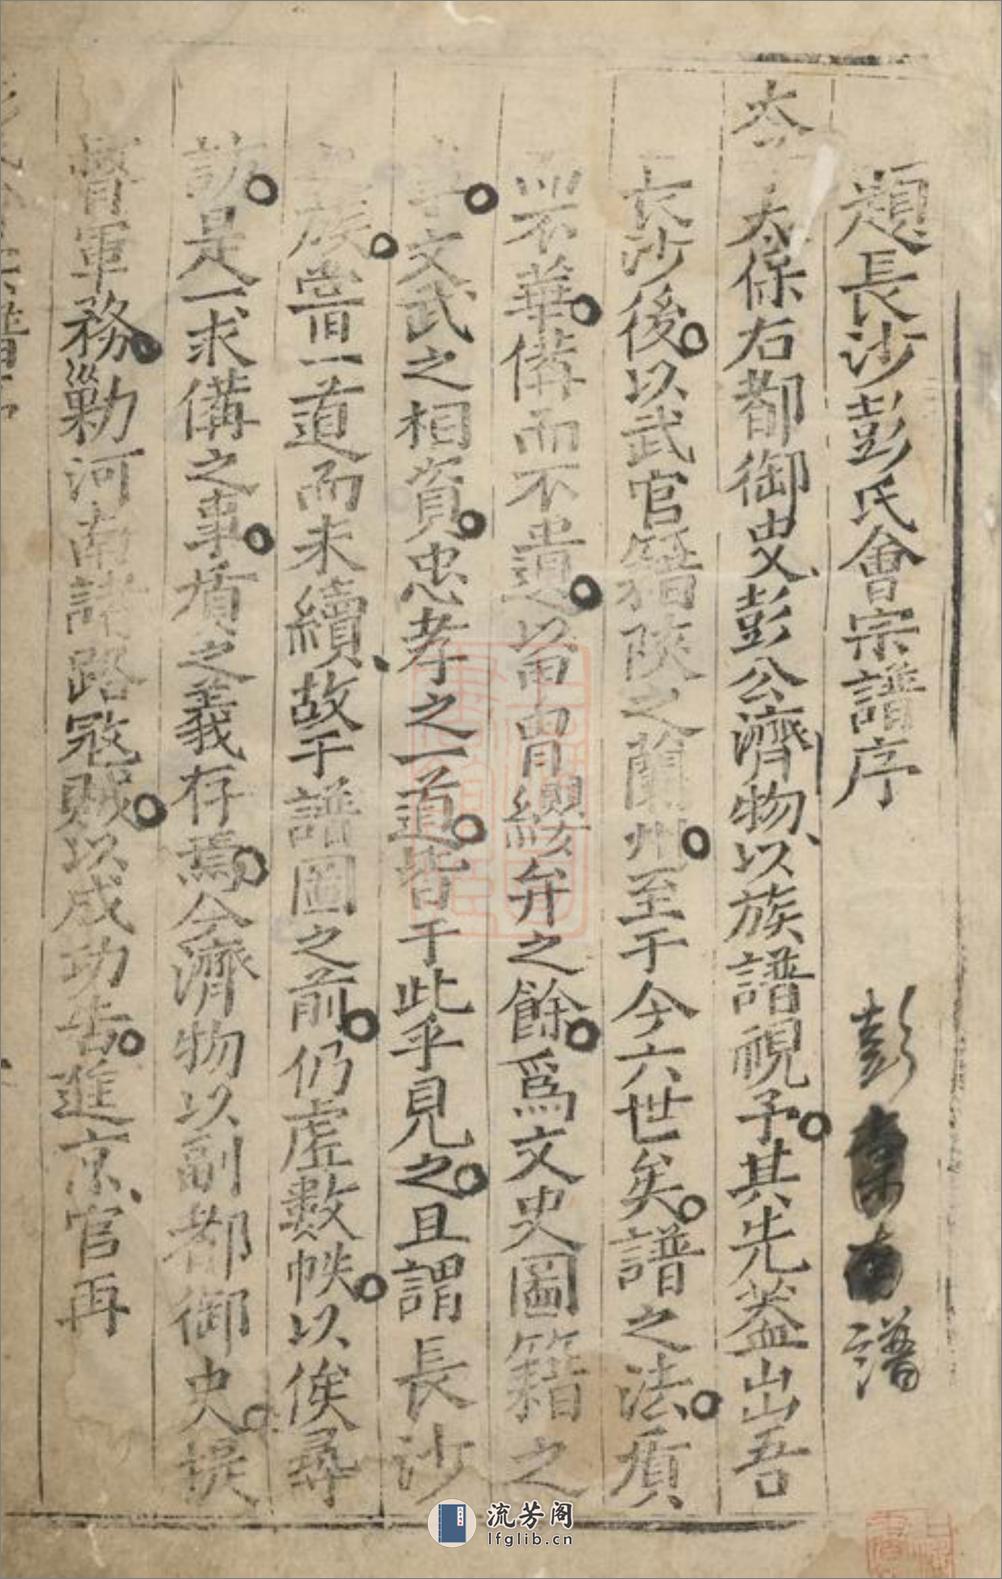 題長沙彭氏會宗譜序
彭南譜
太保右都御史彭公濟物以族譜視予其先葢出吾
長沙後以武官籍陝之蘭州至于今六世矣譜之法質
而不華備而不遺以胄纓弁之餘爲文史圖籍之
文武之相資忠孝之一道皆于此乎見之且謂長沙
族當一道而未續故于譜圖之前仍虛數帙以俟尋
訪是一求備之事質之義存焉今濟物以副都御史提
督軍務勦河南諸路冦賊以成功告進京官再
流芳阁
lfglib.cn